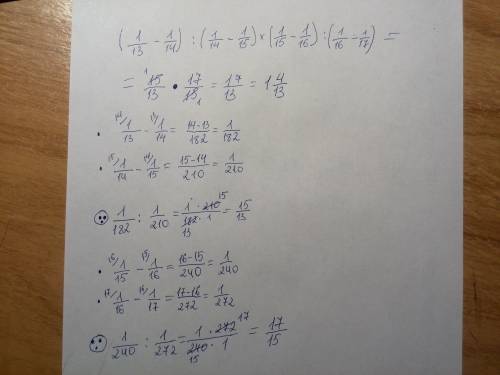 (1/13 - 1/14) : (1/14 - 1/15) × (1/15 - 1/16) : (1/16 - 1/17) =
= ¹15/13 · 17/15₁ = 17/13 = 1 4/13
· ¹⁴/1/13 - ¹³/1/14 = 14-13/182 = 1/182
· ¹⁵/1/14 - ¹⁴/1/15 = 15-14/210 = 1/210
1/182 : 1/210 = 1 · 210 15/182 · 1 13 = 15/13
· ¹⁶/1/15 - ¹⁵/1/16 = 16-15/240 = 1/240
· ¹⁷/1/16 - ¹⁶/1/17 = 17-16/272 = 1/272
1/240 : 1/272 = 1 · 272 17/240 · 1 15 = 17/15